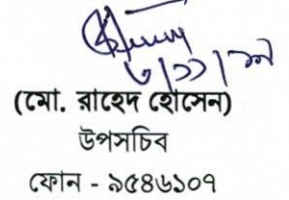 ৬/১১/১৯
(মো. রাহেদ হোসেন)
উপসচিব
ফোন - ৯৫৪৬১০৭